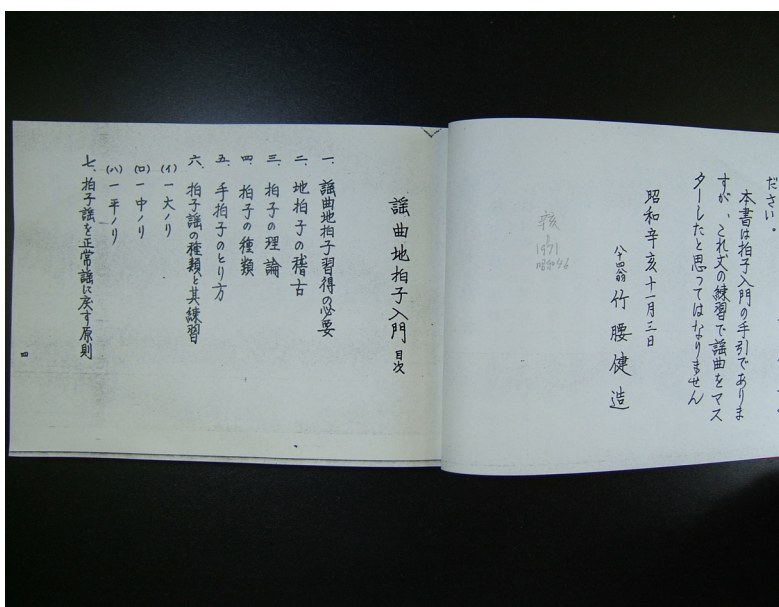 ださい。
本書は拍子入門の手引でありま
すが、これ丈の練習で謡曲をマス
ターしたと思ってはなりません
昭和辛亥十一月三日
八十四翁 竹腰健造
辛亥
1971
昭和46
謡曲地拍子入門 目次
一、謡曲地拍子習得の必要
二、地拍子の稽古
三、拍子の理論
四、拍子の種類
五、手拍子のとり方
六、拍子謡の種類と其練習
(イ) 一大ノリ
(ロ) 一中ノリ
(ハ) 一平ノリ
七、拍子謡を正常謡に戻す原則
四